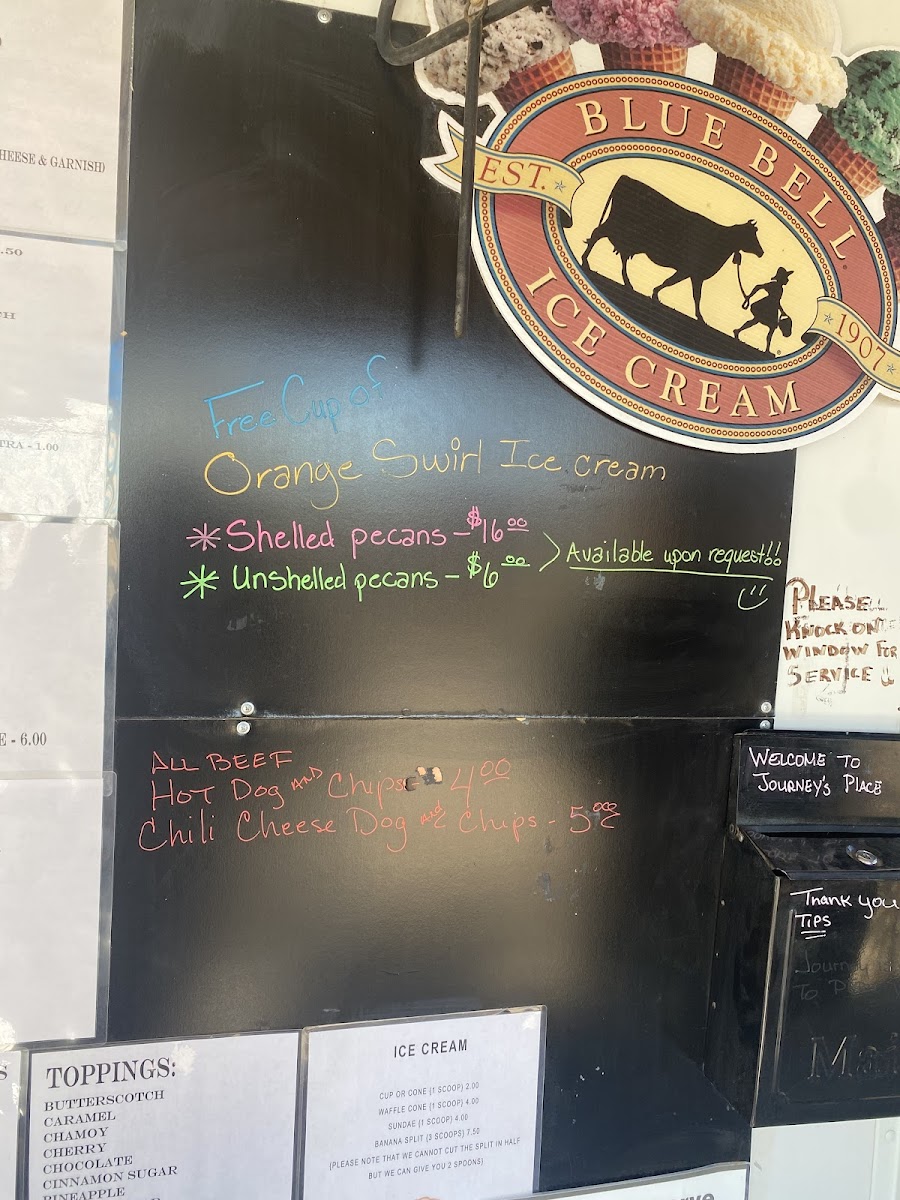 HEESE & GARNISH)
.50
TRA - 1.00
E - 6.00
BLUE BELL
EST. 1907
ICE CREAM
Free Cup of
Orange Swirl Ice cream
* Shelled pecans - $16.00
* Unshelled pecans - $6.00
> Available upon request!!
PLEASE
KNOCK ON
WINDOW FOR
SERVICE
ALL BEEF
HOT DOG AND Chips - 4.00
Chili Cheese Dog and Chips - 5.00
WELCOME TO
JOURNEY'S PLACE
Thank you
TIPS
Journ
To P
Mai
TOPPINGS:
BUTTERSCOTCH
CARAMEL
CHAMOY
CHERRY
CHOCOLATE
CINNAMON SUGAR
PINEAPPLE
ICE CREAM
CUP OR CONE (1 SCOOP) 2.00
WAFFLE CONE (1 SCOOP) 4.00
SUNDAE (1 SCOOP) 4.00
BANANA SPLIT (3 SCOOPS) 7.50
(PLEASE NOTE THAT WE CANNOT CUT THE SPLIT IN HALF
BUT WE CAN GIVE YOU 2 SPOONS)